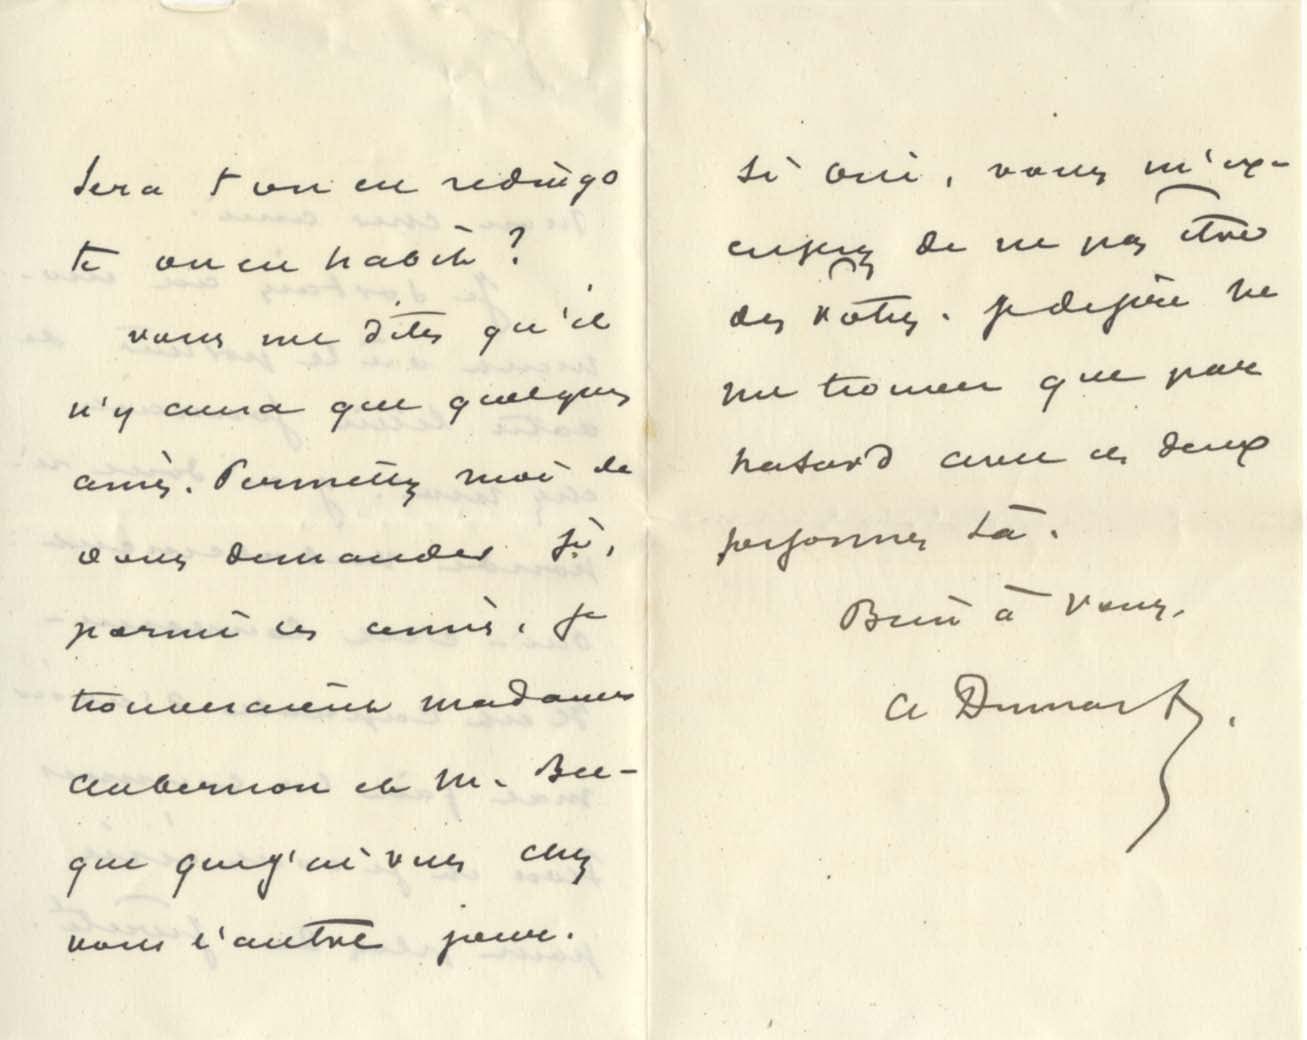 Sera t on en redingo
te ou en habit ?
vous me dites qu'il
n'y aura que quelques
amis. Permettez moi de
vous demander si,
parmi ces amis, je
trouverais madame
Aubernon et M. Bec-
que que j'ai vus chez
vous l'autre jour.
si oui, vous m'ex-
cuserez de ne pas être
des vôtres. je desire ne
me trouver que par
hasard avec ces deux
personnes là.
Bien à vous.
A Dumas f.